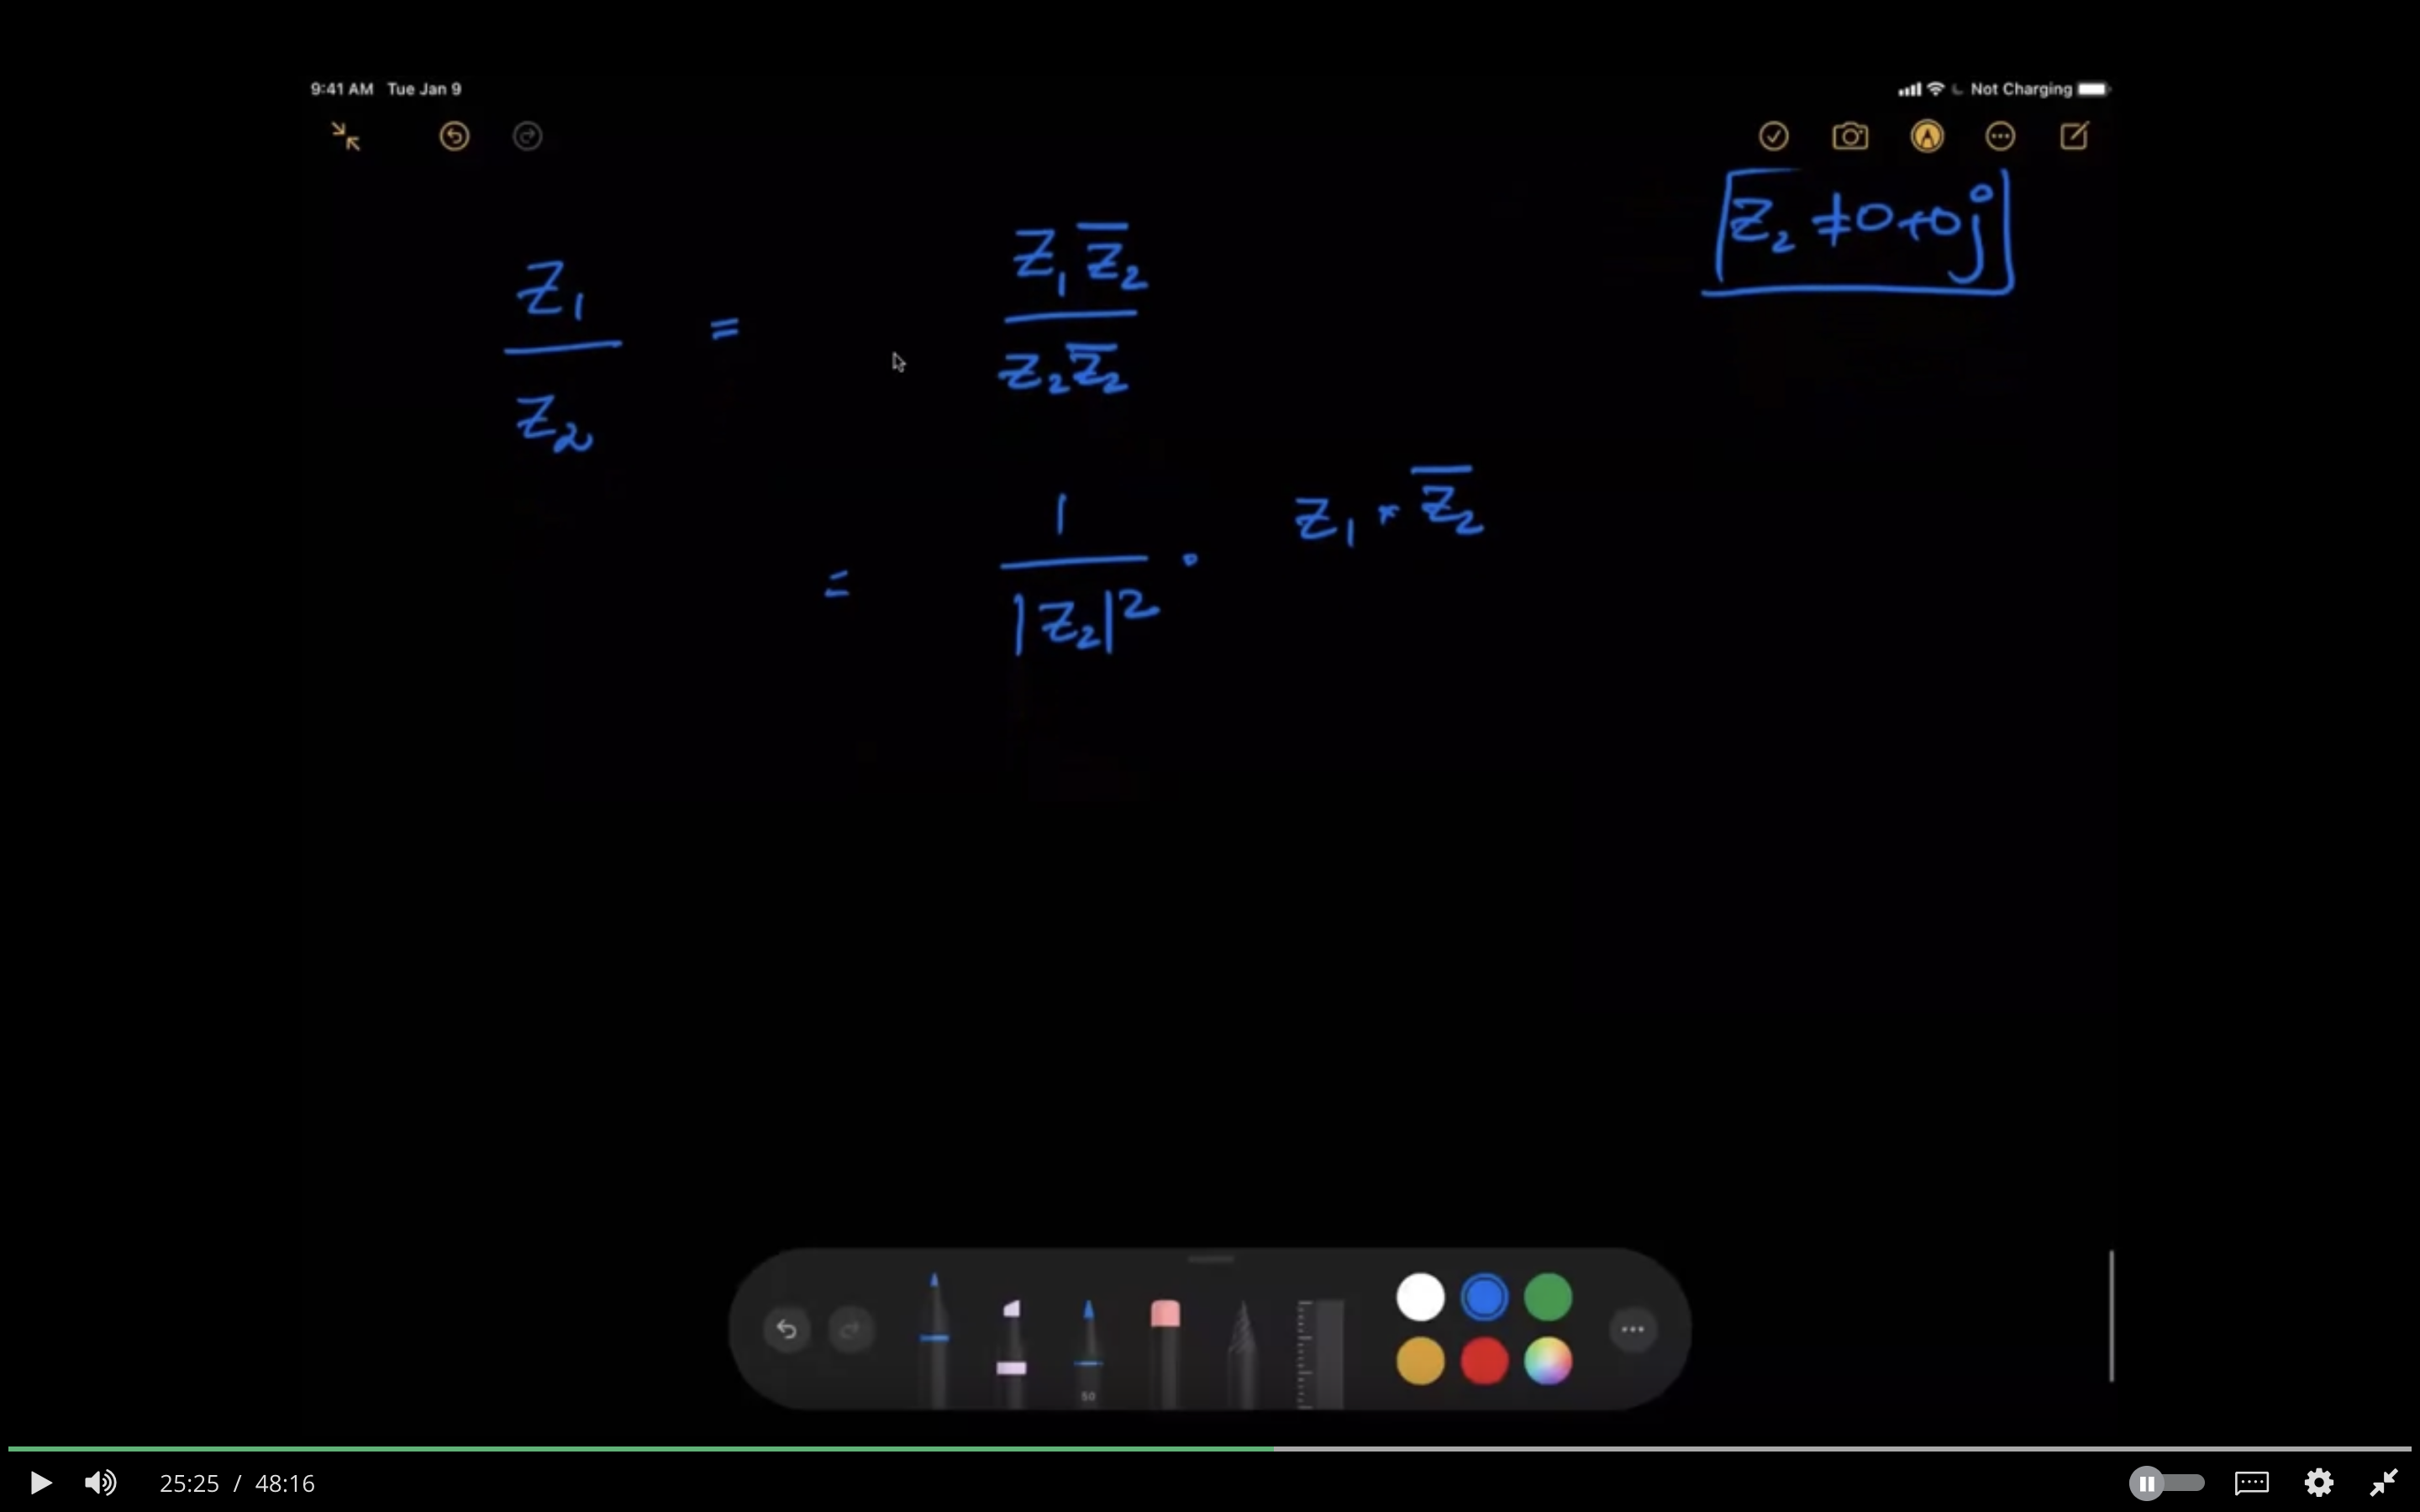 9:41 AM Tue Jan 9 Not Charging
z₂ ≠ 0+0j
z₁/z₂ = z₁z̅₂/z₂z̅₂
= 1/|z₂|² · z₁ * z̅₂
50
25:25 / 48:16